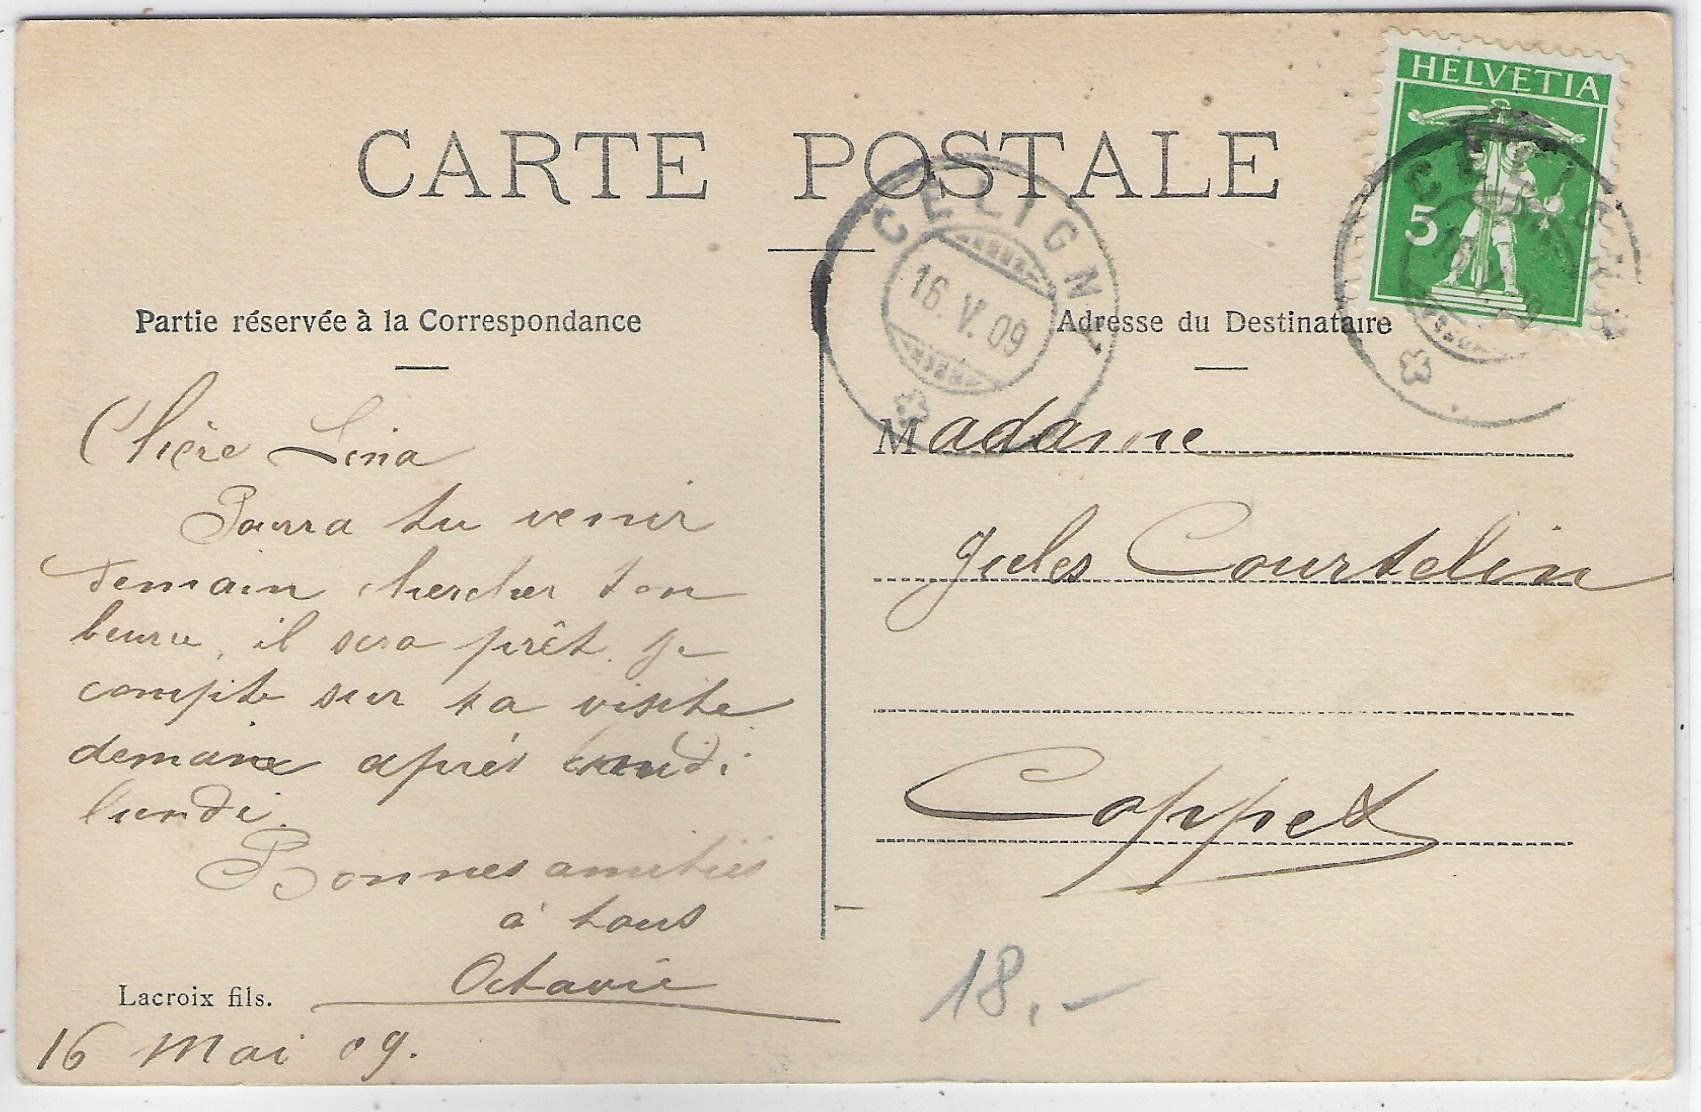 CARTE POSTALE
HELVETIA
5
CELIGNY
16.V.09
CELIGNY
16.V.09
Partie réservée à la Correspondance
Adresse du Destinataire
Chière Lina
Pourra tu venir
demain chercher ton
beurre, il sera prêt. Je
compte sur ta visite
demain après
lundi.
Bonnes amitiés
à tous
Octavie
Lacroix fils.
16 Mai 09.
Madame
Jules Courtelin
Coppet
18.-